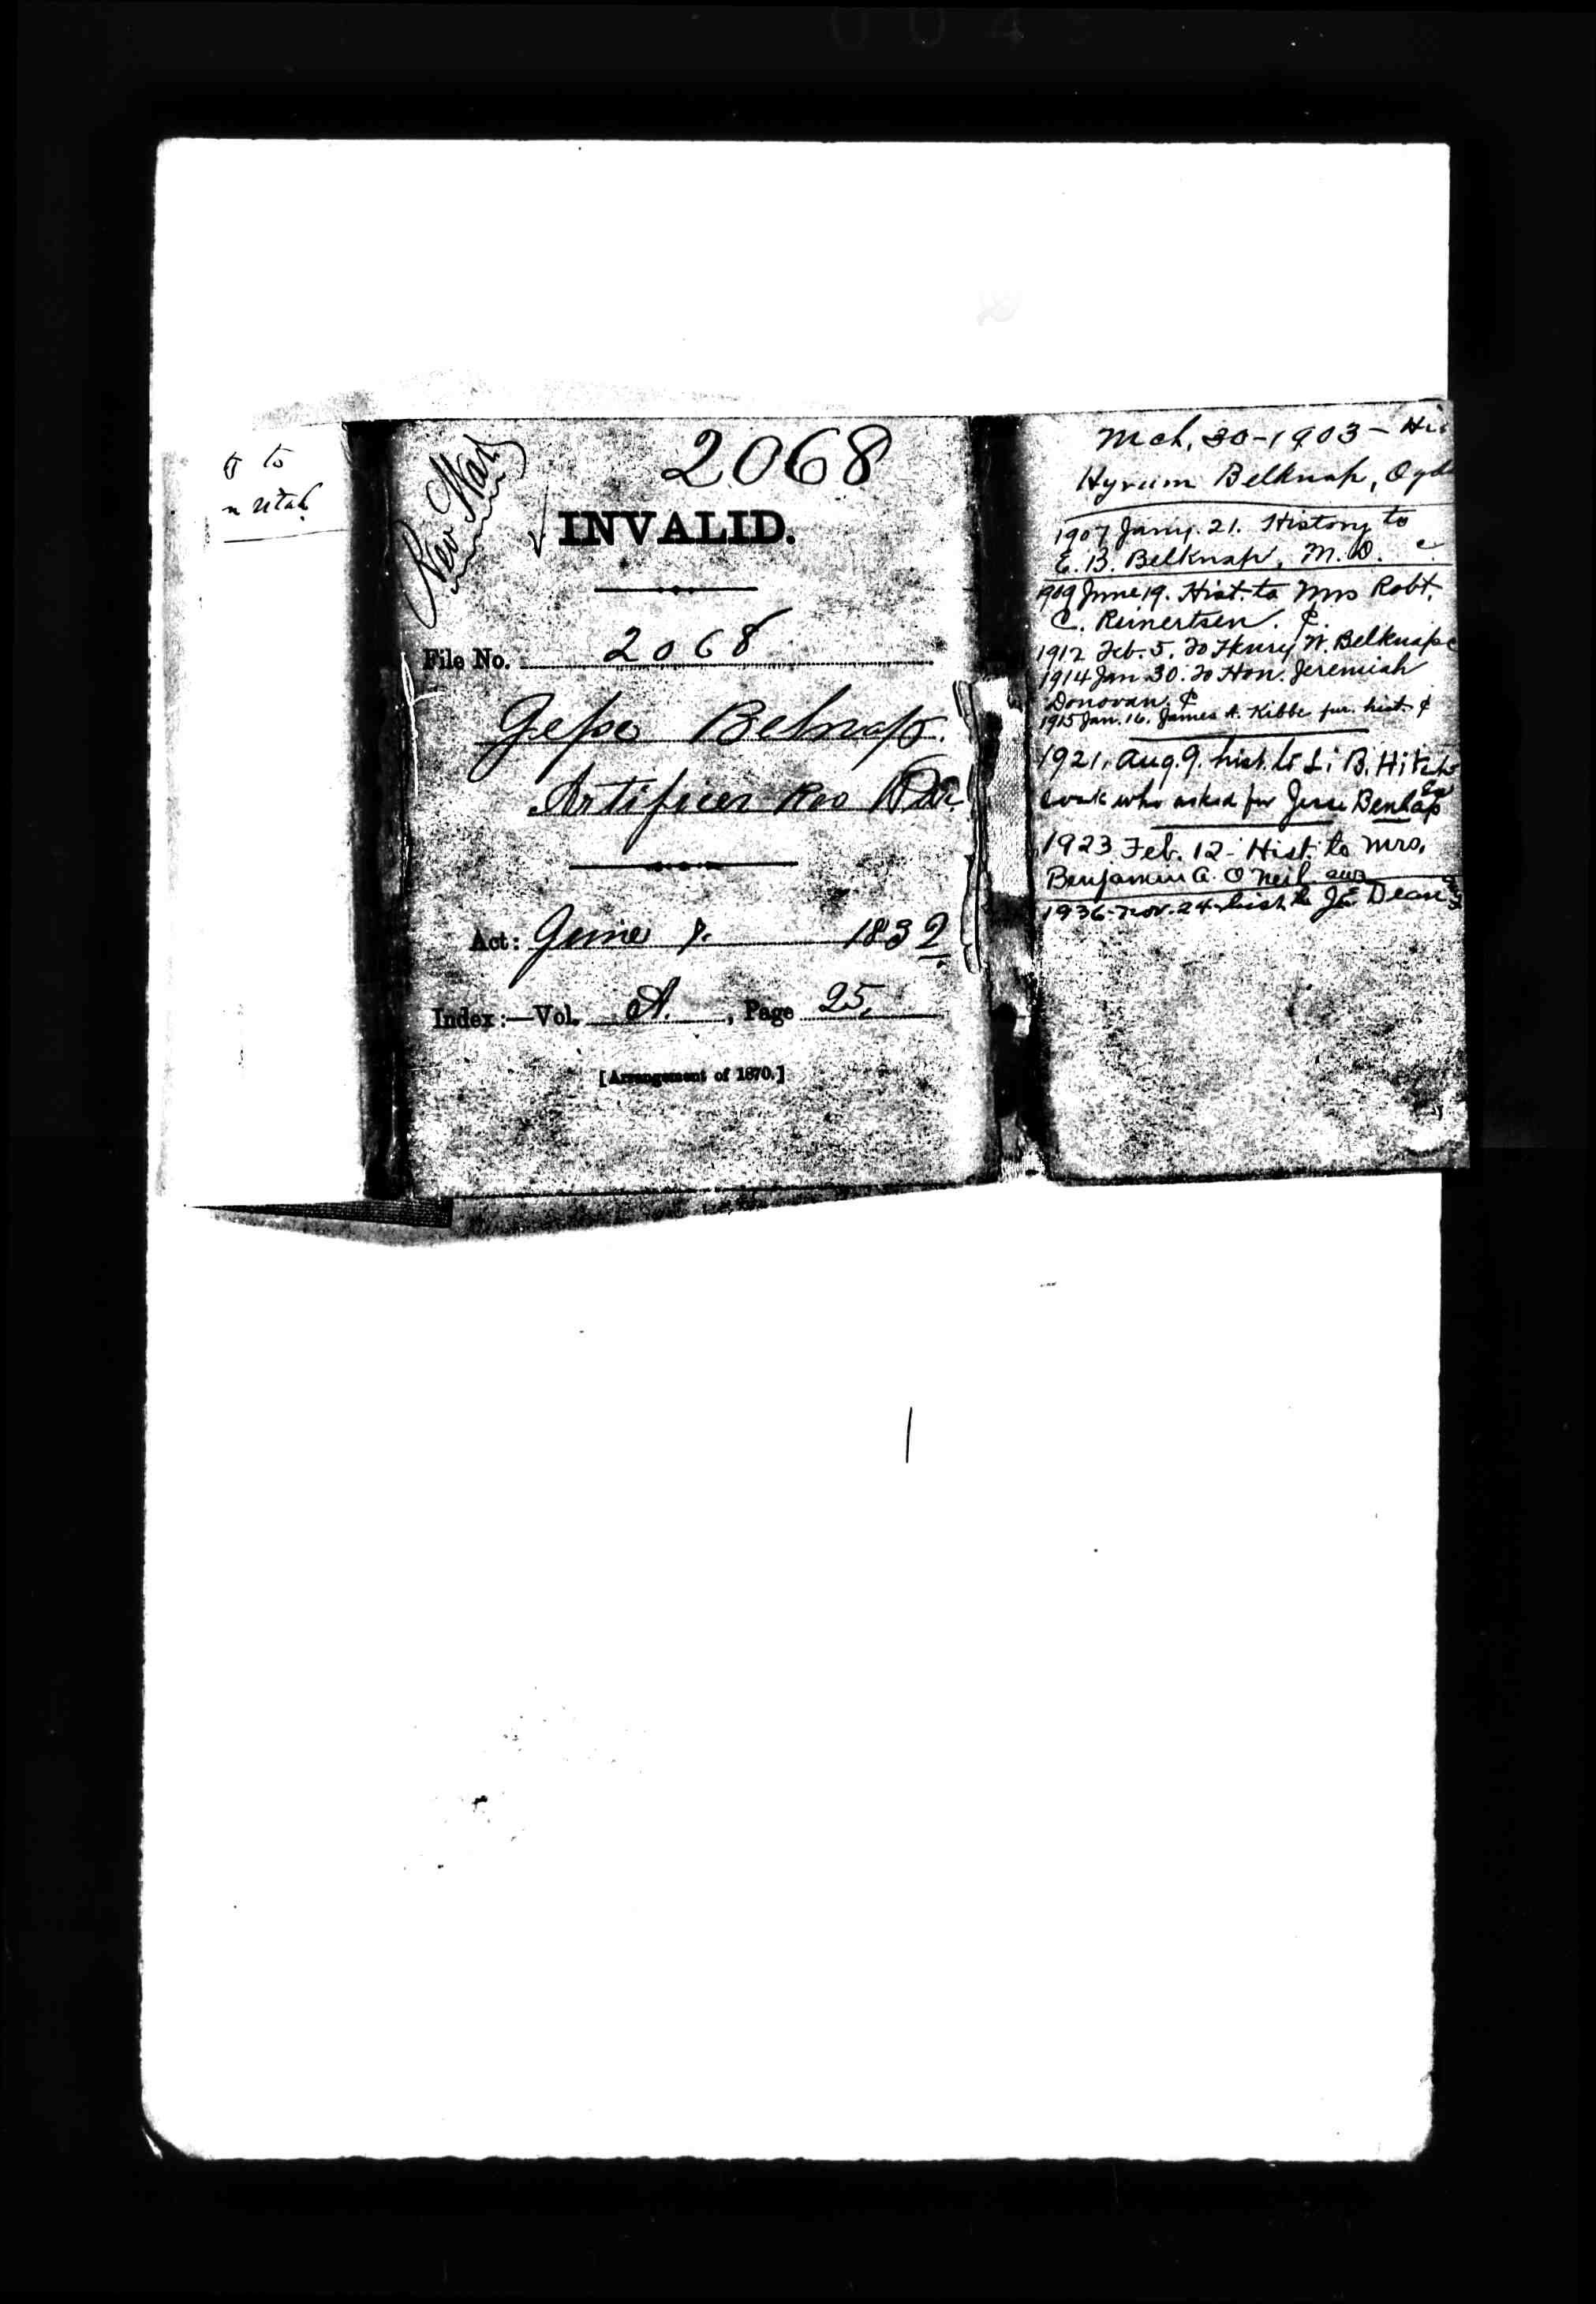 to
Utah
Rev War
2068
INVALID.
File No. 2068
Jesse Belnap.
Artificer Rev War
Act: June 7. 1832
Index:—Vol. A., Page 25,
[Arrangement of 1870.]
Mch. 30-1903-His
Hyrum Belknap, Ogd
1907 Jany. 21. History to
E. B. Belknap, M.D.
1909 June 19. Hist. to Mrs Robt.
C. Reinertsen.
1912 Feb. 5. To Henry W. Belknap
1914 Jan 30. To Hon. Jeremiah
Donovan
1915 Jan. 16. James A. Kibbe fur. hist.
1921, Aug. 9. hist. to Li B. Hitch
cock who asked for Jesse Benlap
1923 Feb. 12 - Hist. to Mrs.
Benjamin A. O'Neil
1936-Nov. 24-hist to J E Dean